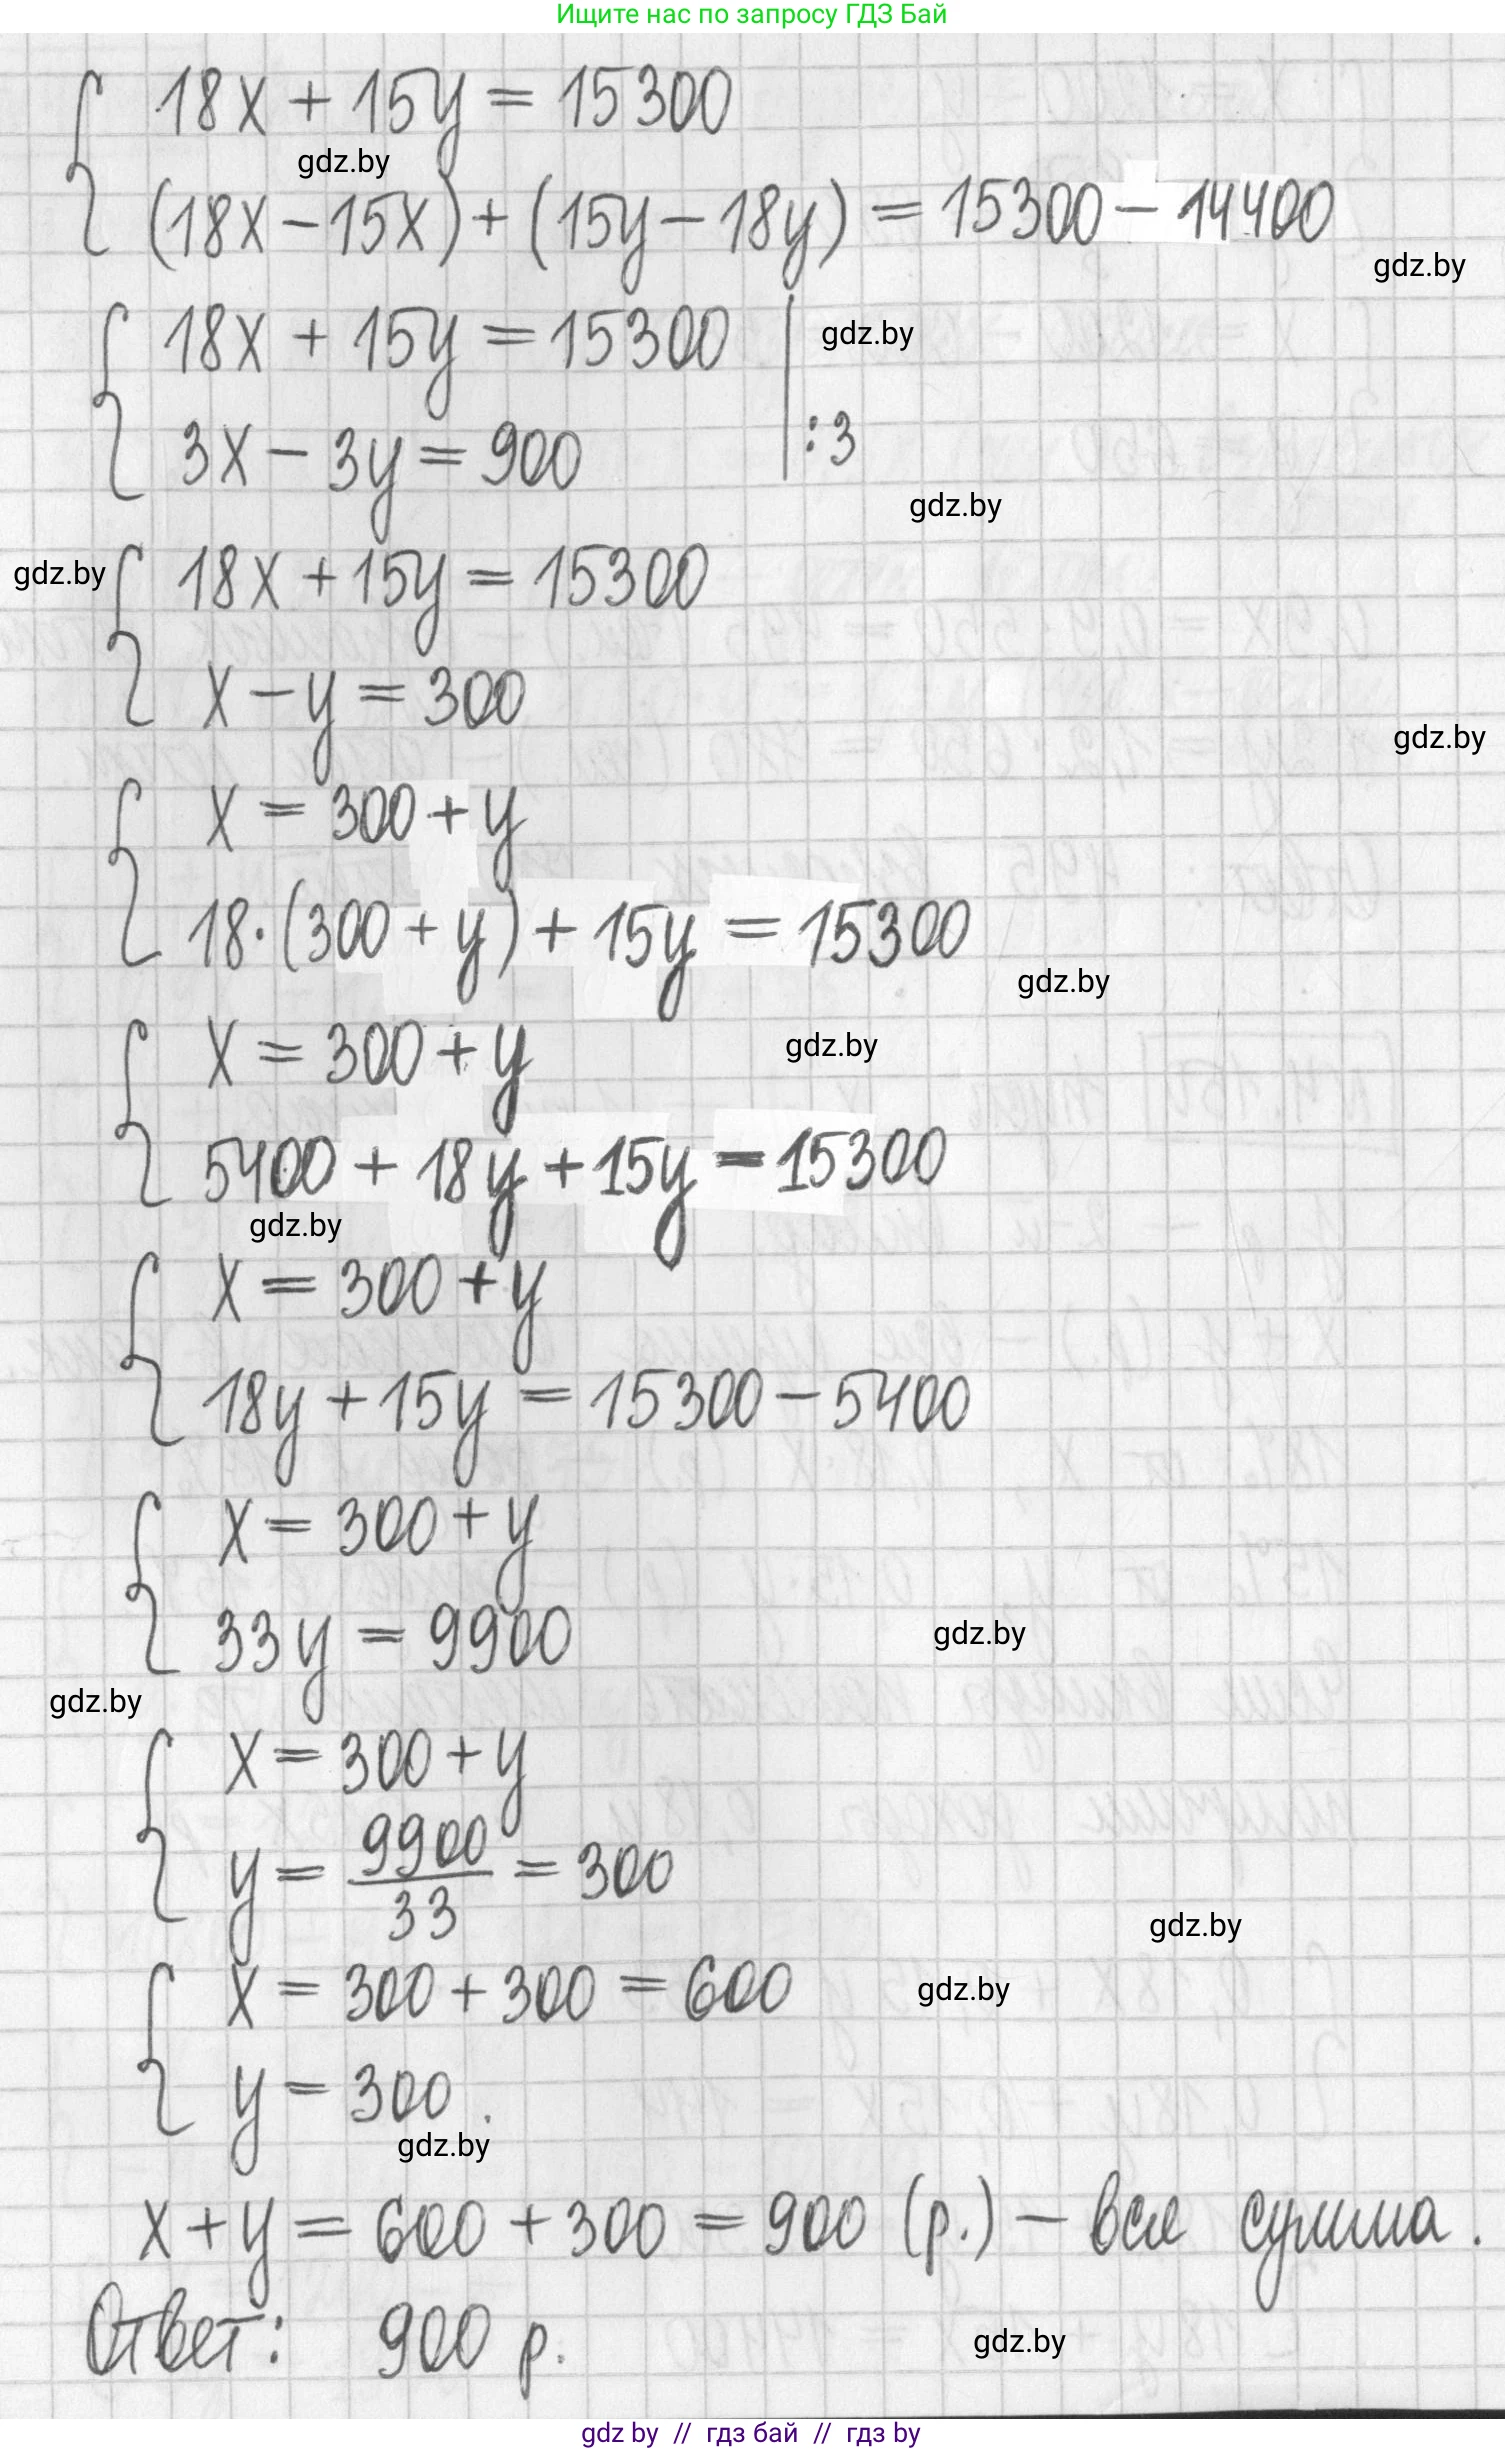 Ищите нас по запросу ГДЗ Бай
18x + 15y = 15300
gdz.by
(18x - 15x) + (15y - 18y) = 15300 - 14400
gdz.by
18x + 15y = 15300
gdz.by
3x - 3y = 900 | :3
gdz.by
gdz.by
18x + 15y = 15300
x - y = 300
gdz.by
x = 300 + y
18·(300 + y) + 15y = 15300
gdz.by
x = 300 + y
gdz.by
5400 + 18y + 15y = 15300
gdz.by
x = 300 + y
18y + 15y = 15300 - 5400
x = 300 + y
33y = 9900
gdz.by
gdz.by
x = 300 + y
y = 9900/33 = 300
gdz.by
x = 300 + 300 = 600
gdz.by
y = 300.
gdz.by
x + y = 600 + 300 = 900 (р.) - вся сумма.
Ответ: 900 р.
gdz.by
gdz by // гдз бай // гдз by